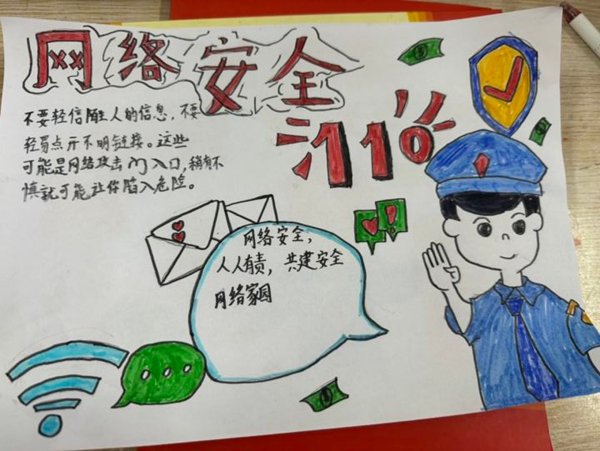 网络安全
不要轻信陌生人的信息,不要
轻易点开不明链接。这些
可能是网络攻击门入口,稍有不
慎就可能让你陷入危险。
110
网络安全,
人人有责,共建安全
网络家园